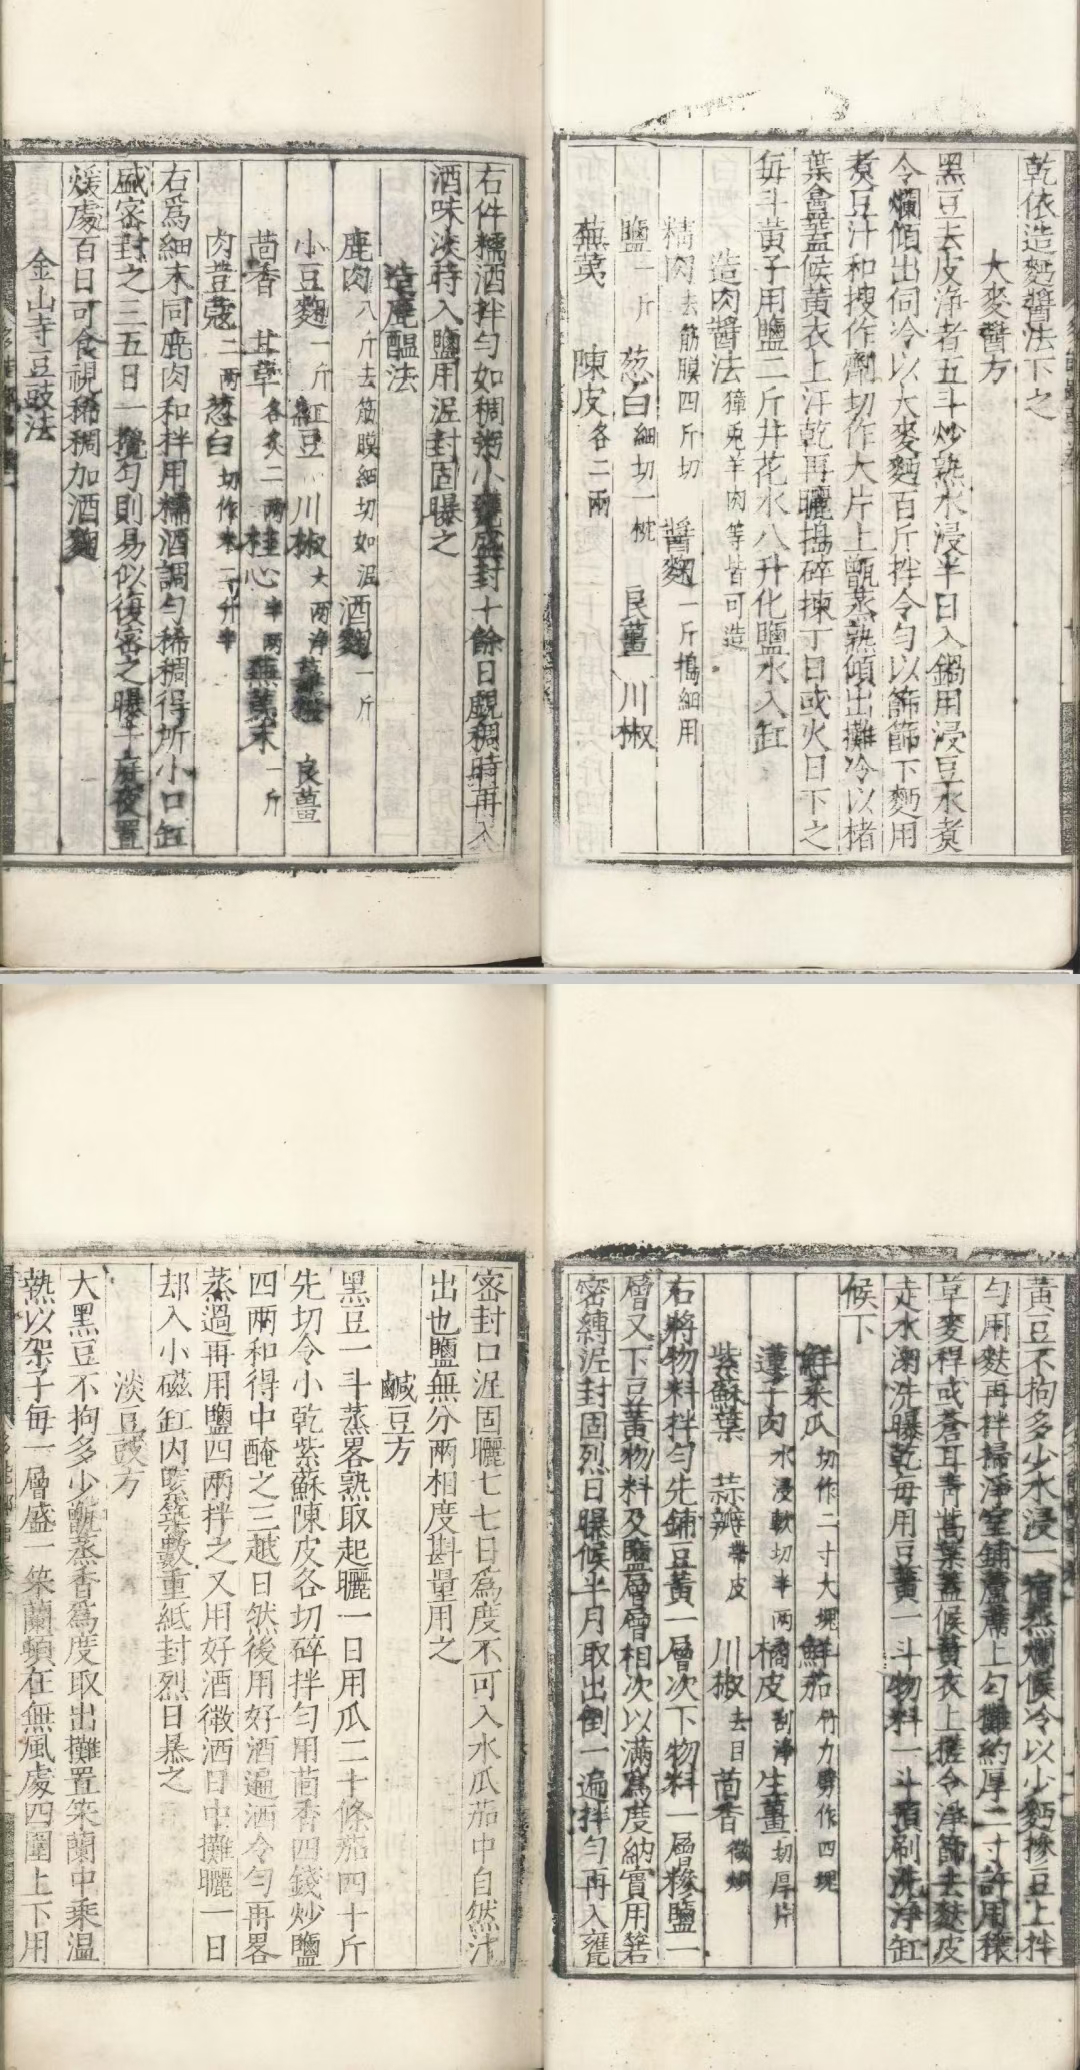 乾依造麪醬法下之
大麥醬方
黑豆去皮淨者五斗炒熟水浸半日入鍋用浸豆水煮
令爛傾出伺冷以大麥麪百斤拌令勻以篩篩下麪用
煮豆汁和搜作劑切作大片上甑蒸熟傾出攤冷以楮
葉盦蓋候黃衣上汗乾再曬搗碎揀丁日或火日下之
每斗黃子用鹽二斤井花水八升化鹽水入缸
造肉醬法 獐兎羊肉等皆可造
精肉 去筋膜四斤切 醬麴 一斤搗細用
鹽 一斤 葱白 細切一椀 良薑 川椒
蕪荑 陳皮 各二兩
右件糯酒拌勻如稠粥小甕盛封十餘日覷稠時再入
酒味淡時入鹽用泥封固曝之
造鹿醢法
鹿肉 八斤去筋膜細切如泥 酒麴 一斤
小豆麴 一斤 紅豆 川椒 大兩淨 蓽撥 良薑
茴香 甘草 各炙二兩 桂心 半兩 蕪荑末 一斤
肉荳蔻 二兩 葱白 切作末二升半
右爲細末同鹿肉和拌用糯酒調勻稀稠得所小口缸
盛密封之三五日一攪勻則易似復密之曝干庭夜置
煖處百日可食視稀稠加酒麴
金山寺豆豉法
黃豆不拘多少水浸一宿蒸爛候冷以少麪摻豆上拌
勻用麩再拌掃淨室鋪蘆蓆上勻攤約厚二寸許用穰
草麥稈或蒼耳青蒿葉蓋候黃衣上搓令淨篩去麩皮
走水淘洗曝乾每用豆黃一斗物料一斗預刷洗淨缸
候下
鮮菜瓜 切作二寸大塊 鮮茄 竹刀劈作四塊
蓮子肉 水浸軟切半兩 橘皮 刮淨 生薑 切厚片
紫蘇葉 蒜瓣 帶皮 川椒 去目 茴香 微炒
右將物料拌勻先鋪豆黃一層次下物料一層糝鹽一
層又下豆黃物料及鹽層層相次以滿爲度納實用箬
密縛泥封固烈日曝候半月取出倒一遍拌勻再入甕
密封口泥固曬七七日爲度不可入水瓜茄中自然汁
出也鹽無分兩相度斟量用之
鹹豆方
黑豆一斗蒸畧熟取起曬一日用瓜二十條茄四十斤
先切令小乾紫蘇陳皮各切碎拌勻用茴香四錢炒鹽
四兩和得中醃之三越日然後用好酒遍洒令勻再畧
蒸過再用鹽四兩拌之又用好酒微洒日中攤曬一日
却入小磁缸內築數重紙封烈日暴之
淡豆豉方
大黑豆不拘多少甑蒸香爲度取出攤置筞蘭中乘溫
熱以架子每一層盛一筞蘭頓在無風處四圍上下用